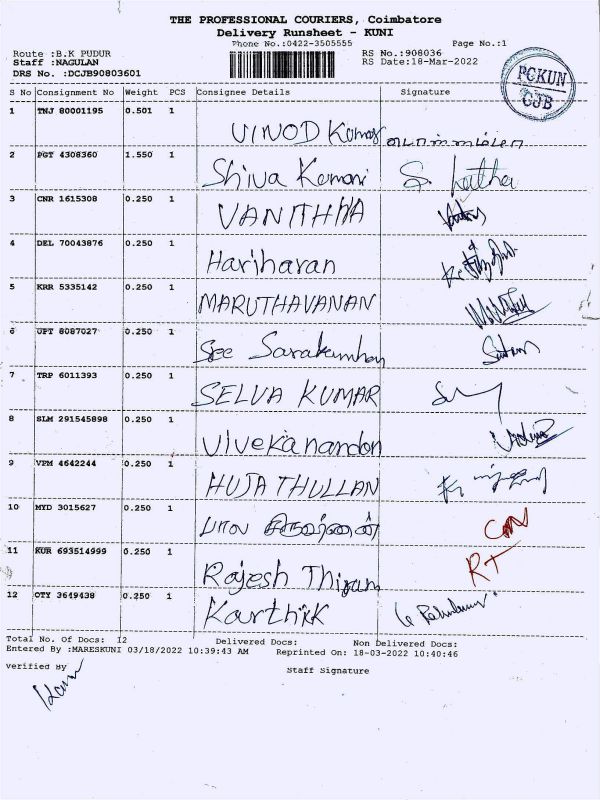 THE PROFESSIONAL COURIERS, Coimbatore
Delivery Runsheet - KUNI
Phone No.:0422-3505555 Page No.:1
Route :B.K PUDUR RS No.:908036
Staff :NAGULAN RS Date:18-Mar-2022
DRS No. :DCJB90803601
PCKUN
CJB
S No Consignment No Weight PCS Consignee Details Signature
1 TNJ 80001195 0.501 1 VINOD Kumar
2 PGT 4308360 1.550 1 Shiva Kumari S. Latha
3 CNR 1615308 0.250 1 VANITHHA
4 DEL 70043876 0.250 1 Hariharan
5 KRR 5335142 0.250 1 MARUTHAVANAN
6 UPT 8087027 0.250 1 Sree
7 TRP 6011393 0.250 1 SELVA KUMAR
8 SLM 291545898 0.250 1 Vivekanandon
9 VPM 4642244 0.250 1 HUJATHULLAN
10 MYD 3015627 0.250 1 பால
11 KUR 693514999 0.250 1 Rajesh RT
12 OTY 3649438 0.250 1 Karthik
Total No. Of Docs: 12 Delivered Docs: Non Delivered Docs:
Entered By :MARESKUNI 03/18/2022 10:39:43 AM Reprinted On: 18-03-2022 10:40:46
Verified By Staff Signature